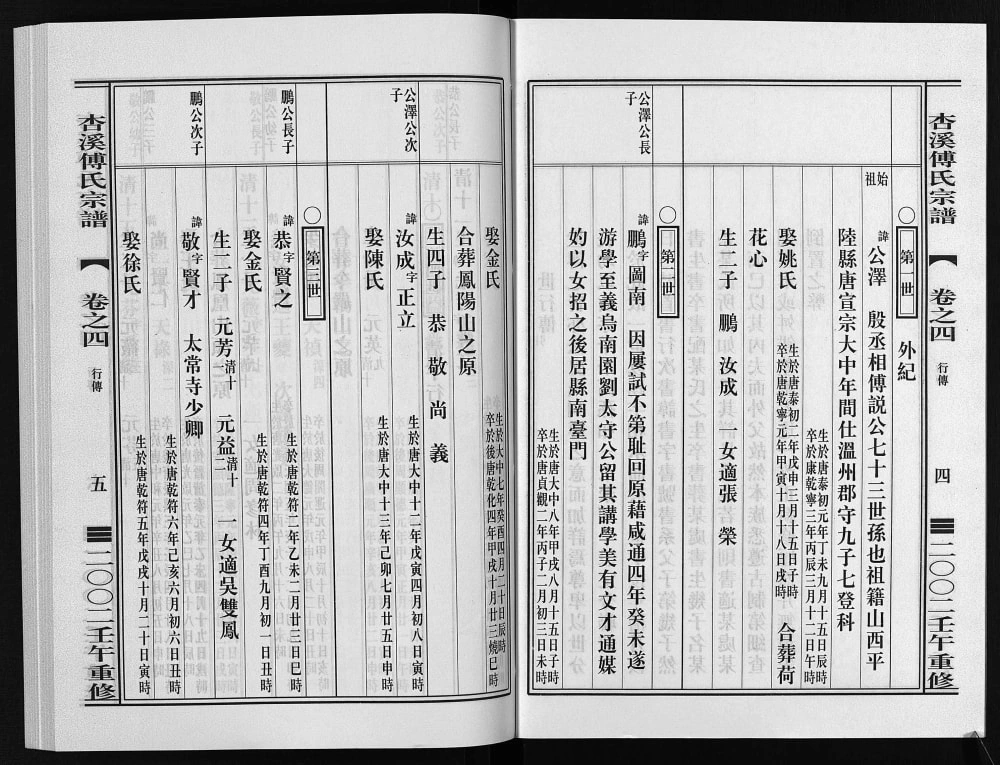 杏溪傅氏宗譜 【 卷之四 行傳 四 二〇〇二壬午重修
〇 第一世 外紀
始祖
諱公澤 殷丞相傅説公七十三世孫也祖籍山西平
陸縣唐宣宗大中年間仕溫州郡守九子七登科
生於唐泰初元年丁未九月十五日辰時
卒於唐乾寧三年丙辰三月十二日午時
娶姚氏 生於唐泰初二年戊申三月十五日子時
卒於唐乾寧元年甲寅十月十八日戌時 合葬荷
花心
生二子 鵬 汝成 一女適張 榮
〇 第二世
公澤公長子
諱鵬字圖南 因屢試不第耻回原藉咸通四年癸未遂
游學至義烏南園劉太守公留其講學美有文才通媒
妁以女招之後居縣南臺門
生於唐大中八年甲戌三月十八日戌時
卒於唐貞觀二年丙子二月初三日未時
娶金氏 生於大中七年癸酉四月二十日辰時
卒於後唐乾化四年甲戌十月廿三燒巳時
合葬鳳陽山之原
生四子 恭 敬 尚 義
公澤公次子
諱汝成字正立 生於唐大中十二年戊寅四月初八日寅時
娶陳氏 生於唐大中十三年己卯七月廿五日申時
〇 第三世
鵬公長子
諱恭字賢之 生於唐乾符二年乙未二月廿三日巳時
娶金氏 生於唐乾符四年丁酉九月初一日丑時
生二子 元芳清十 元益清十二 一女適吳雙鳳
鵬公次子
諱敬字賢才 太常寺少卿 生於唐乾符六年己亥六月初六日丑時
娶徐氏 生於唐乾符五年戊戌十月二十日寅時
杏溪傅氏宗譜 【 卷之四 行傳 五 二〇〇二壬午重修